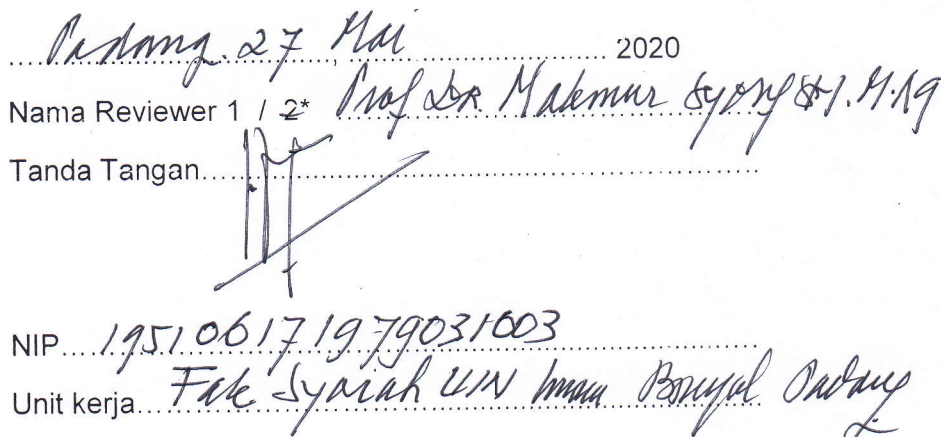 Padang, 27 Mai 2020
Nama Reviewer 1 / 2* Prof DR. Makmur Syarif SH. M.Ag
Tanda Tangan
NIP 195106171979031003
Unit kerja Fak Syariah UIN Imam Bonjol Padang